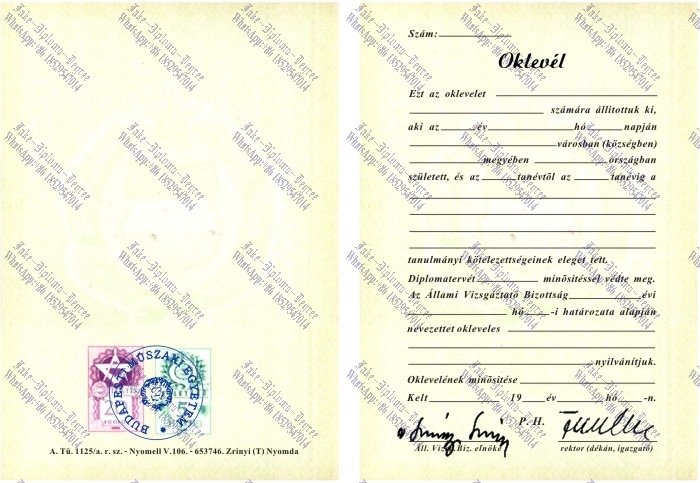 BUDAPESTI MŰSZAKI EGYETEM
A. Tü. 1125/a. r. sz. - Nyomell V.106. - 653746. Zrinyi (T) Nyomda
Szám:
Oklevél
Ezt az oklevelet
számára állitottuk ki,
aki az év hó napján
városban (községben)
megyében országban
született, és az tanévtõl az tanévig a
tanulmányi kötelezettségeinek eleget tett.
Diplomatervét minõsitéssel védte meg.
Az Állami Vizsgáztató Bizottság évi
hó -i határozata alapján
nevezettet okleveles
nyilvánítjuk.
Oklevelének minõsitése
Kelt 19 év hó -n.
P. H.
Áll. Viz. Biz. elnöke rektor (dékán, igazgató)
Fake-Diploma-Degree